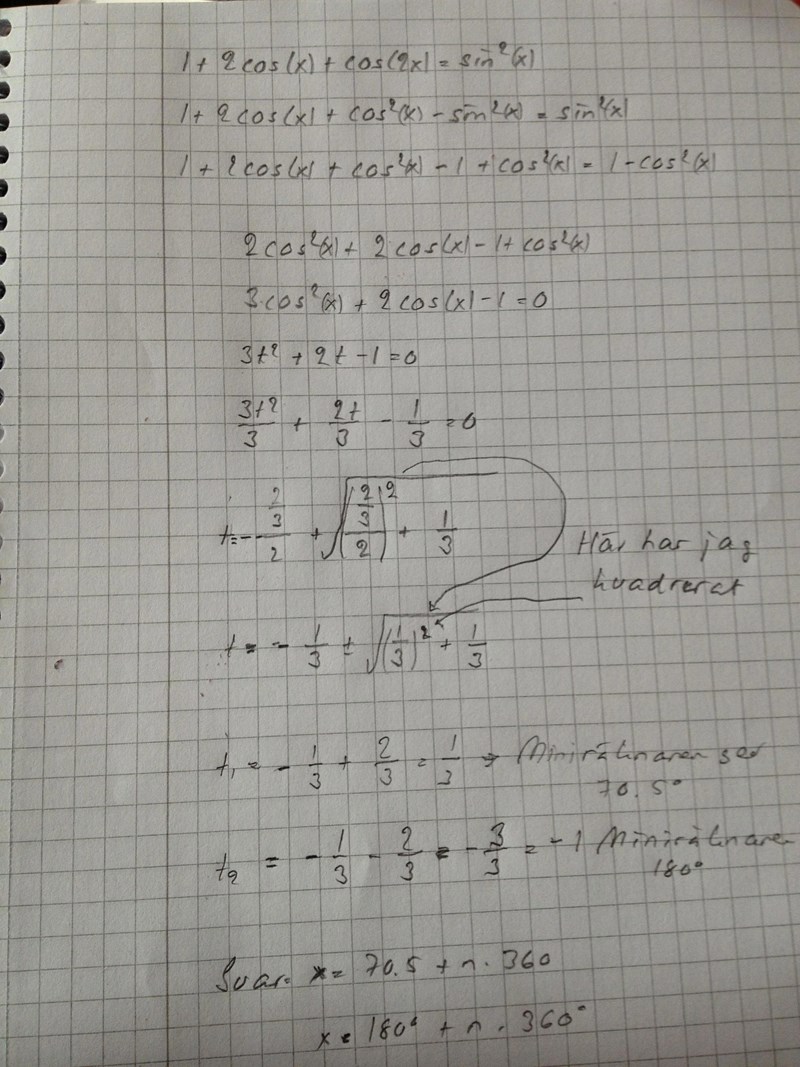 1 + 2cos(x) + cos(2x) = sin²(x)
1 + 2cos(x) + cos²(x) - sin²(x) = sin²(x)
1 + 2cos(x) + cos²(x) - 1 + cos²(x) = 1 - cos²(x)
2cos²(x) + 2cos(x) - 1 + cos²(x)
3cos²(x) + 2cos(x) - 1 = 0
3t² + 2t - 1 = 0
3t²/3 + 2t/3 - 1/3 = 0
t = - (2/3)/2 + √(((2/3)/2)² + 1/3)
Här har jag
kvadrerat
t = - 1/3 ± √((1/3)² + 1/3)
t₁ = - 1/3 + 2/3 = 1/3 → Miniräknaren ger
70.5°
t₂ = - 1/3 - 2/3 = - 3/3 = -1 Miniräknaren
180°
Svar: x = 70.5 + n · 360
x = 180° + n · 360°